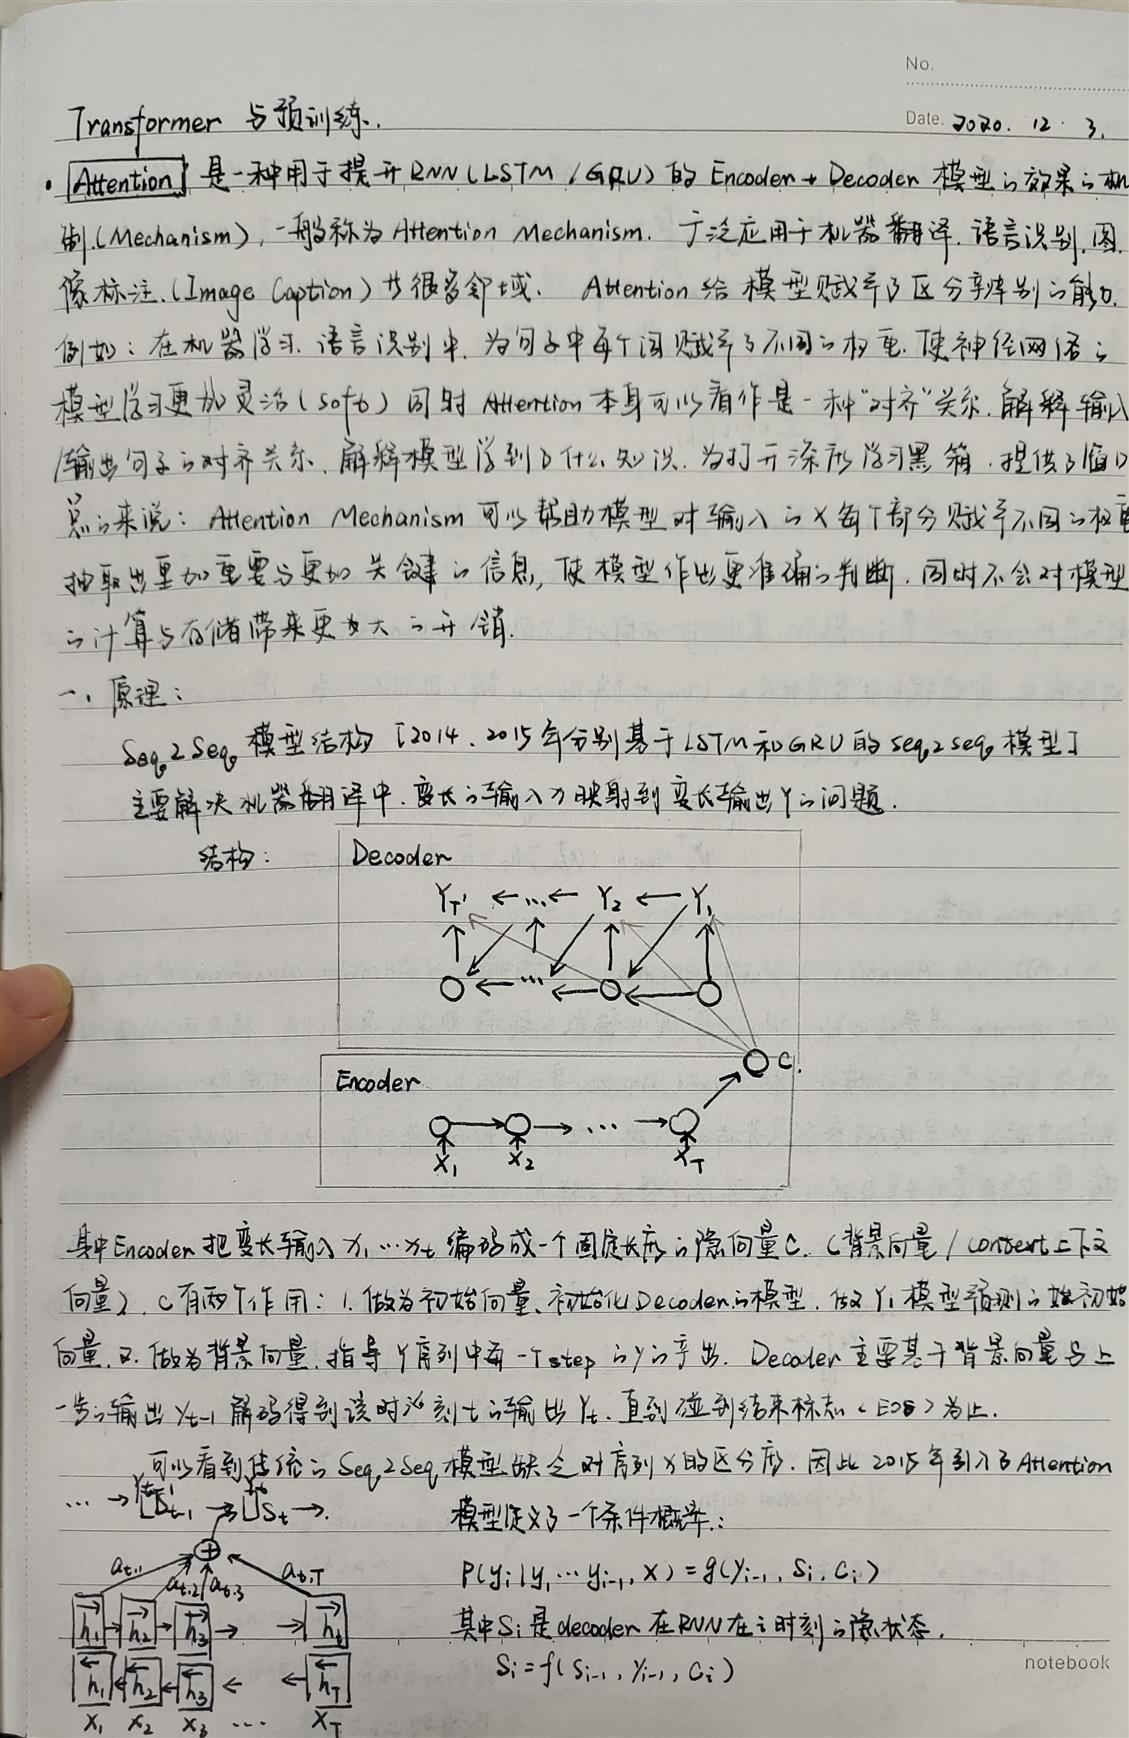 No.
Date. 2020. 12. 3.
Transformer 与预训练.
· Attention 是一种用于提升RNN(LSTM/GRU)的 Encoder + Decoder 模型的效果的机
制.(Mechanism), 一般称为 Attention Mechanism. 广泛应用于机器翻译. 语言识别. 图
像标注.(Image Caption) 艹很多领域. Attention 给 模型赋予了区分辨别的能力.
例如: 在机器学习. 语言识别中. 为句子中每个词赋予了不同的权重. 使神经网络的
模型学习更加灵活(soft) 同时 Attention 本身可以看作是一种"对齐"关系. 解释输入
/输出句子的对齐关系. 解释模型学到了什么知识. 为打开深度学习黑箱. 提供了窗口
总的来说: Attention Mechanism 可以帮助模型对输入的X每个部分赋予不同的权重
抽取出更加重要与更加关键的信息, 使模型作出更准确的判断. 同时不会对模型
的计算与存储带来更大的开销.
一. 原理:
Seq2Seq 模型结构 [2014、2015年分别基于LSTM和GRU的seq2seq模型]
主要解决机器翻译中. 变长的输入X映射到变长输出Y的问题.
结构:
Decoder
YT' ← ... ← Y2 ← Y1
...
C.
Encoder
...
X1 X2 XT
其中Encoder把变长输入 x1 ... xt 编码成一个固定长度的隐向量C. (背景向量/context上下文
向量). C有两个作用: 1. 做为初始向量、初始化Decoder的模型. 做为Y1模型预测的初始
向量. 2. 做为背景向量. 指导Y序列中每一个step的y的产出. Decoder主要基于背景向量与上
一步的输出 yt-1 解码得到该时刻t的输出yt. 直到碰到结束标志<EOS>为止.
可以看到传统的Seq2Seq模型缺乏对序列X的区分度. 因此 2015年引入了Attention
模型定义了一个条件概率:
P(yi|y1...yi-1, X) = g(yi-1, Si, Ci)
其中Si是decoder在RNN在i时刻的隐状态.
Si = f(Si-1, yi-1, Ci)
... → St-1 → St →.
+
at,1 at,2 at,3 at,T
h1 h2 h3 → → ht
h1 h2 h3 ← ← hT
X1 X2 X3 ... XT
notebook